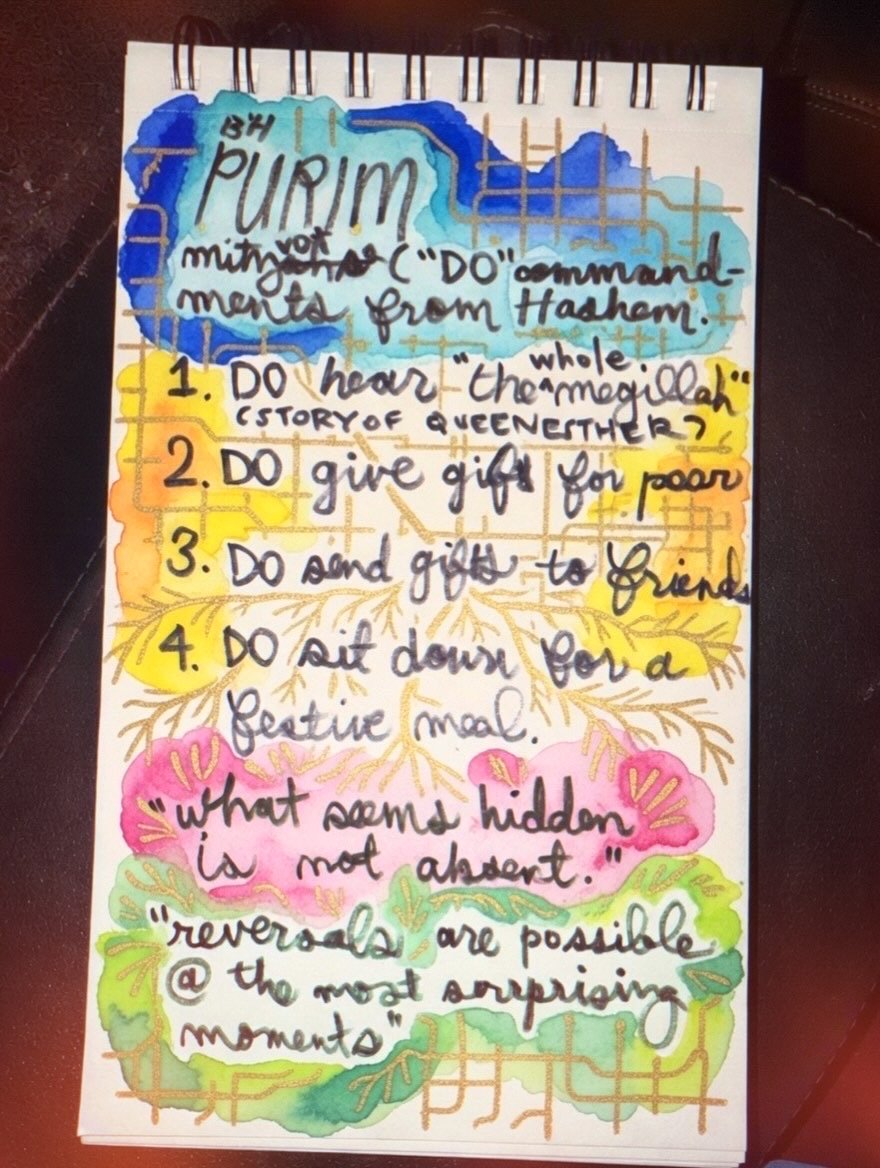 B"H
PURIM
mitzvot ("DO" command-
ments from Hashem.
1. DO hear "the whole megillah"
(STORY OF QUEEN ESTHER)
2. DO give gift for poor
3. DO send gifts to friends
4. DO sit down for a
festive meal.
"what seems hidden
is not absent."
"reversals are possible
@ the most surprising
moments"